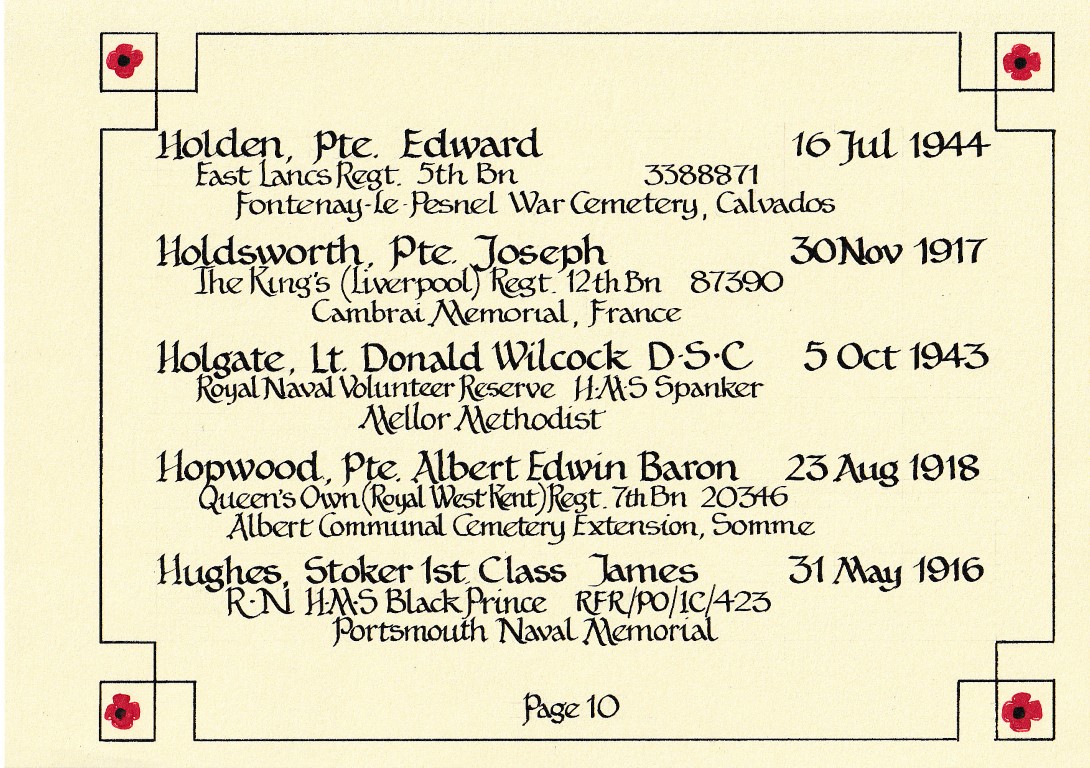 Holden, Pte. Edward 16 Jul 1944
East Lancs Regt. 5th Bn 3388871
Fontenay-Le-Pesnel War Cemetery, Calvados
Holdsworth, Pte. Joseph 30 Nov 1917
The King's (Liverpool) Regt. 12th Bn 87390
Cambrai Memorial, France
Holgate, Lt. Donald Wilcock D·S·C 5 Oct 1943
Royal Naval Volunteer Reserve H·M·S Spanker
Mellor Methodist
Hopwood, Pte. Albert Edwin Baron 23 Aug 1918
Queen's Own (Royal West Kent) Regt. 7th Bn 20346
Albert Communal Cemetery Extension, Somme
Hughes, Stoker 1st Class James 31 May 1916
R·N H·M·S Black Prince RFR/PO/IC/423
Portsmouth Naval Memorial
Page 10